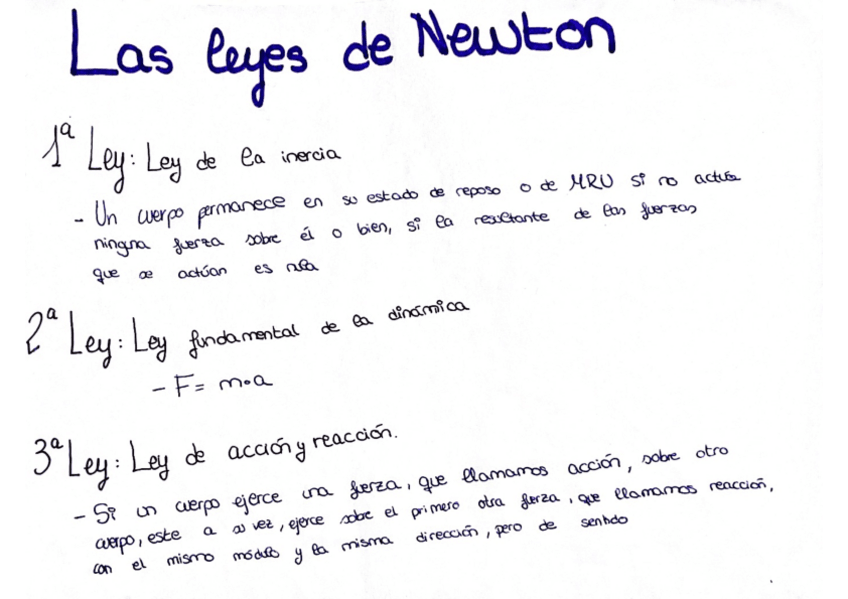 Las leyes de Newton
1ª Ley: Ley de la inercia
- Un cuerpo permanece en su estado de reposo o de MRU si no actúa
ninguna fuerza sobre él o bien, si la resultante de las fuerzas
que actúan es nula
2ª Ley: Ley fundamental de la dinámica
- F= m•a
3ª Ley: Ley de acción y reacción.
- Si un cuerpo ejerce una fuerza, que llamamos acción, sobre otro
cuerpo, este a su vez, ejerce sobre el primero otra fuerza, que llamamos reacción,
con el mismo módulo y la misma dirección, pero de sentido